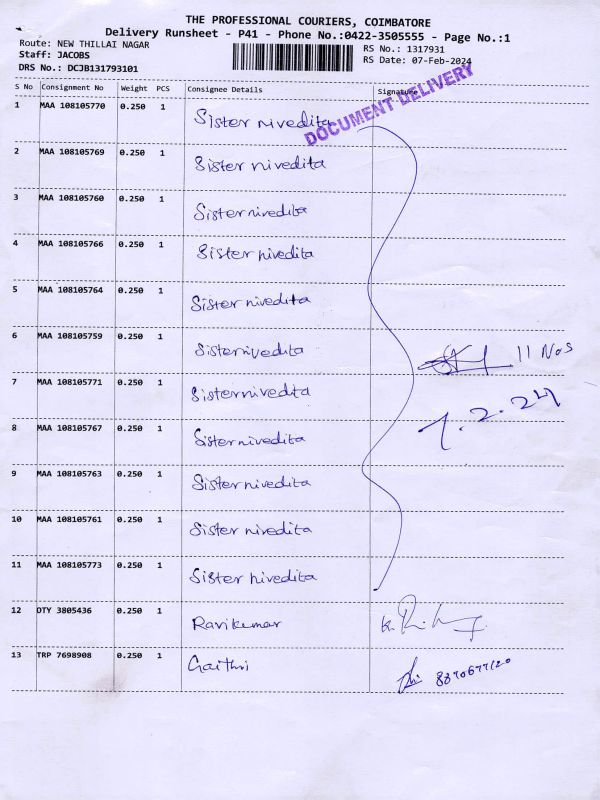 THE PROFESSIONAL COURIERS, COIMBATORE
Delivery Runsheet - P41 - Phone No.:0422-3505555 - Page No.:1
Route: NEW THILLAI NAGAR
RS No.: 1317931
Staff: JACOBS
RS Date: 07-Feb-2024
DRS No.: DCJB131793101
DOCUMENT DELIVERY
S No Consignment No Weight PCS Consignee Details Signature
1 MAA 108105770 0.250 1 Sister nivedita
2 MAA 108105769 0.250 1 Sister nivedita
3 MAA 108105760 0.250 1 Sister nivedita
4 MAA 108105766 0.250 1 Sister nivedita
5 MAA 108105764 0.250 1 Sister nivedita
6 MAA 108105759 0.250 1 Sister nivedita 11 Nos
7 MAA 108105771 0.250 1 Sister nivedita
7.2.24
8 MAA 108105767 0.250 1 Sister nivedita
9 MAA 108105763 0.250 1 Sister nivedita
10 MAA 108105761 0.250 1 Sister nivedita
11 MAA 108105773 0.250 1 Sister nivedita
12 OTY 3805436 0.250 1 Ravikumar
13 TRP 7698908 0.250 1 Gaithri